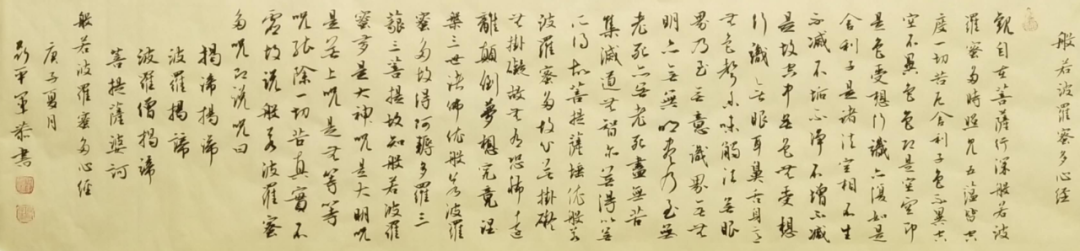 般若波羅蜜多心經
觀自在菩薩行深般若波
羅蜜多時照見五蘊皆空
度一切苦厄舍利子色不異空
空不異色色即是空空即
是色受想行識亦復如是
舍利子是諸法空相不生
不滅不垢不淨不增不減
是故空中無色無受想
行識無眼耳鼻舌身意
無色聲香味觸法無眼
界乃至無意識界無無
明亦無無明盡乃至無
老死亦無老死盡無苦
集滅道無智亦無得以無
所得故菩提薩埵依般若
波羅蜜多故心無掛礙
無掛礙故無有恐怖遠
離顛倒夢想究竟涅
槃三世諸佛依般若波羅
蜜多故得阿耨多羅三
藐三菩提故知般若波羅
蜜多是大神呪是大明呪
是無上呪是無等等
呪能除一切苦真實不
虛故說般若波羅蜜
多呪即說呪曰
揭諦揭諦
波羅揭諦
波羅僧揭諦
菩提薩婆訶
般若波羅蜜多心經
庚子夏月
恭書